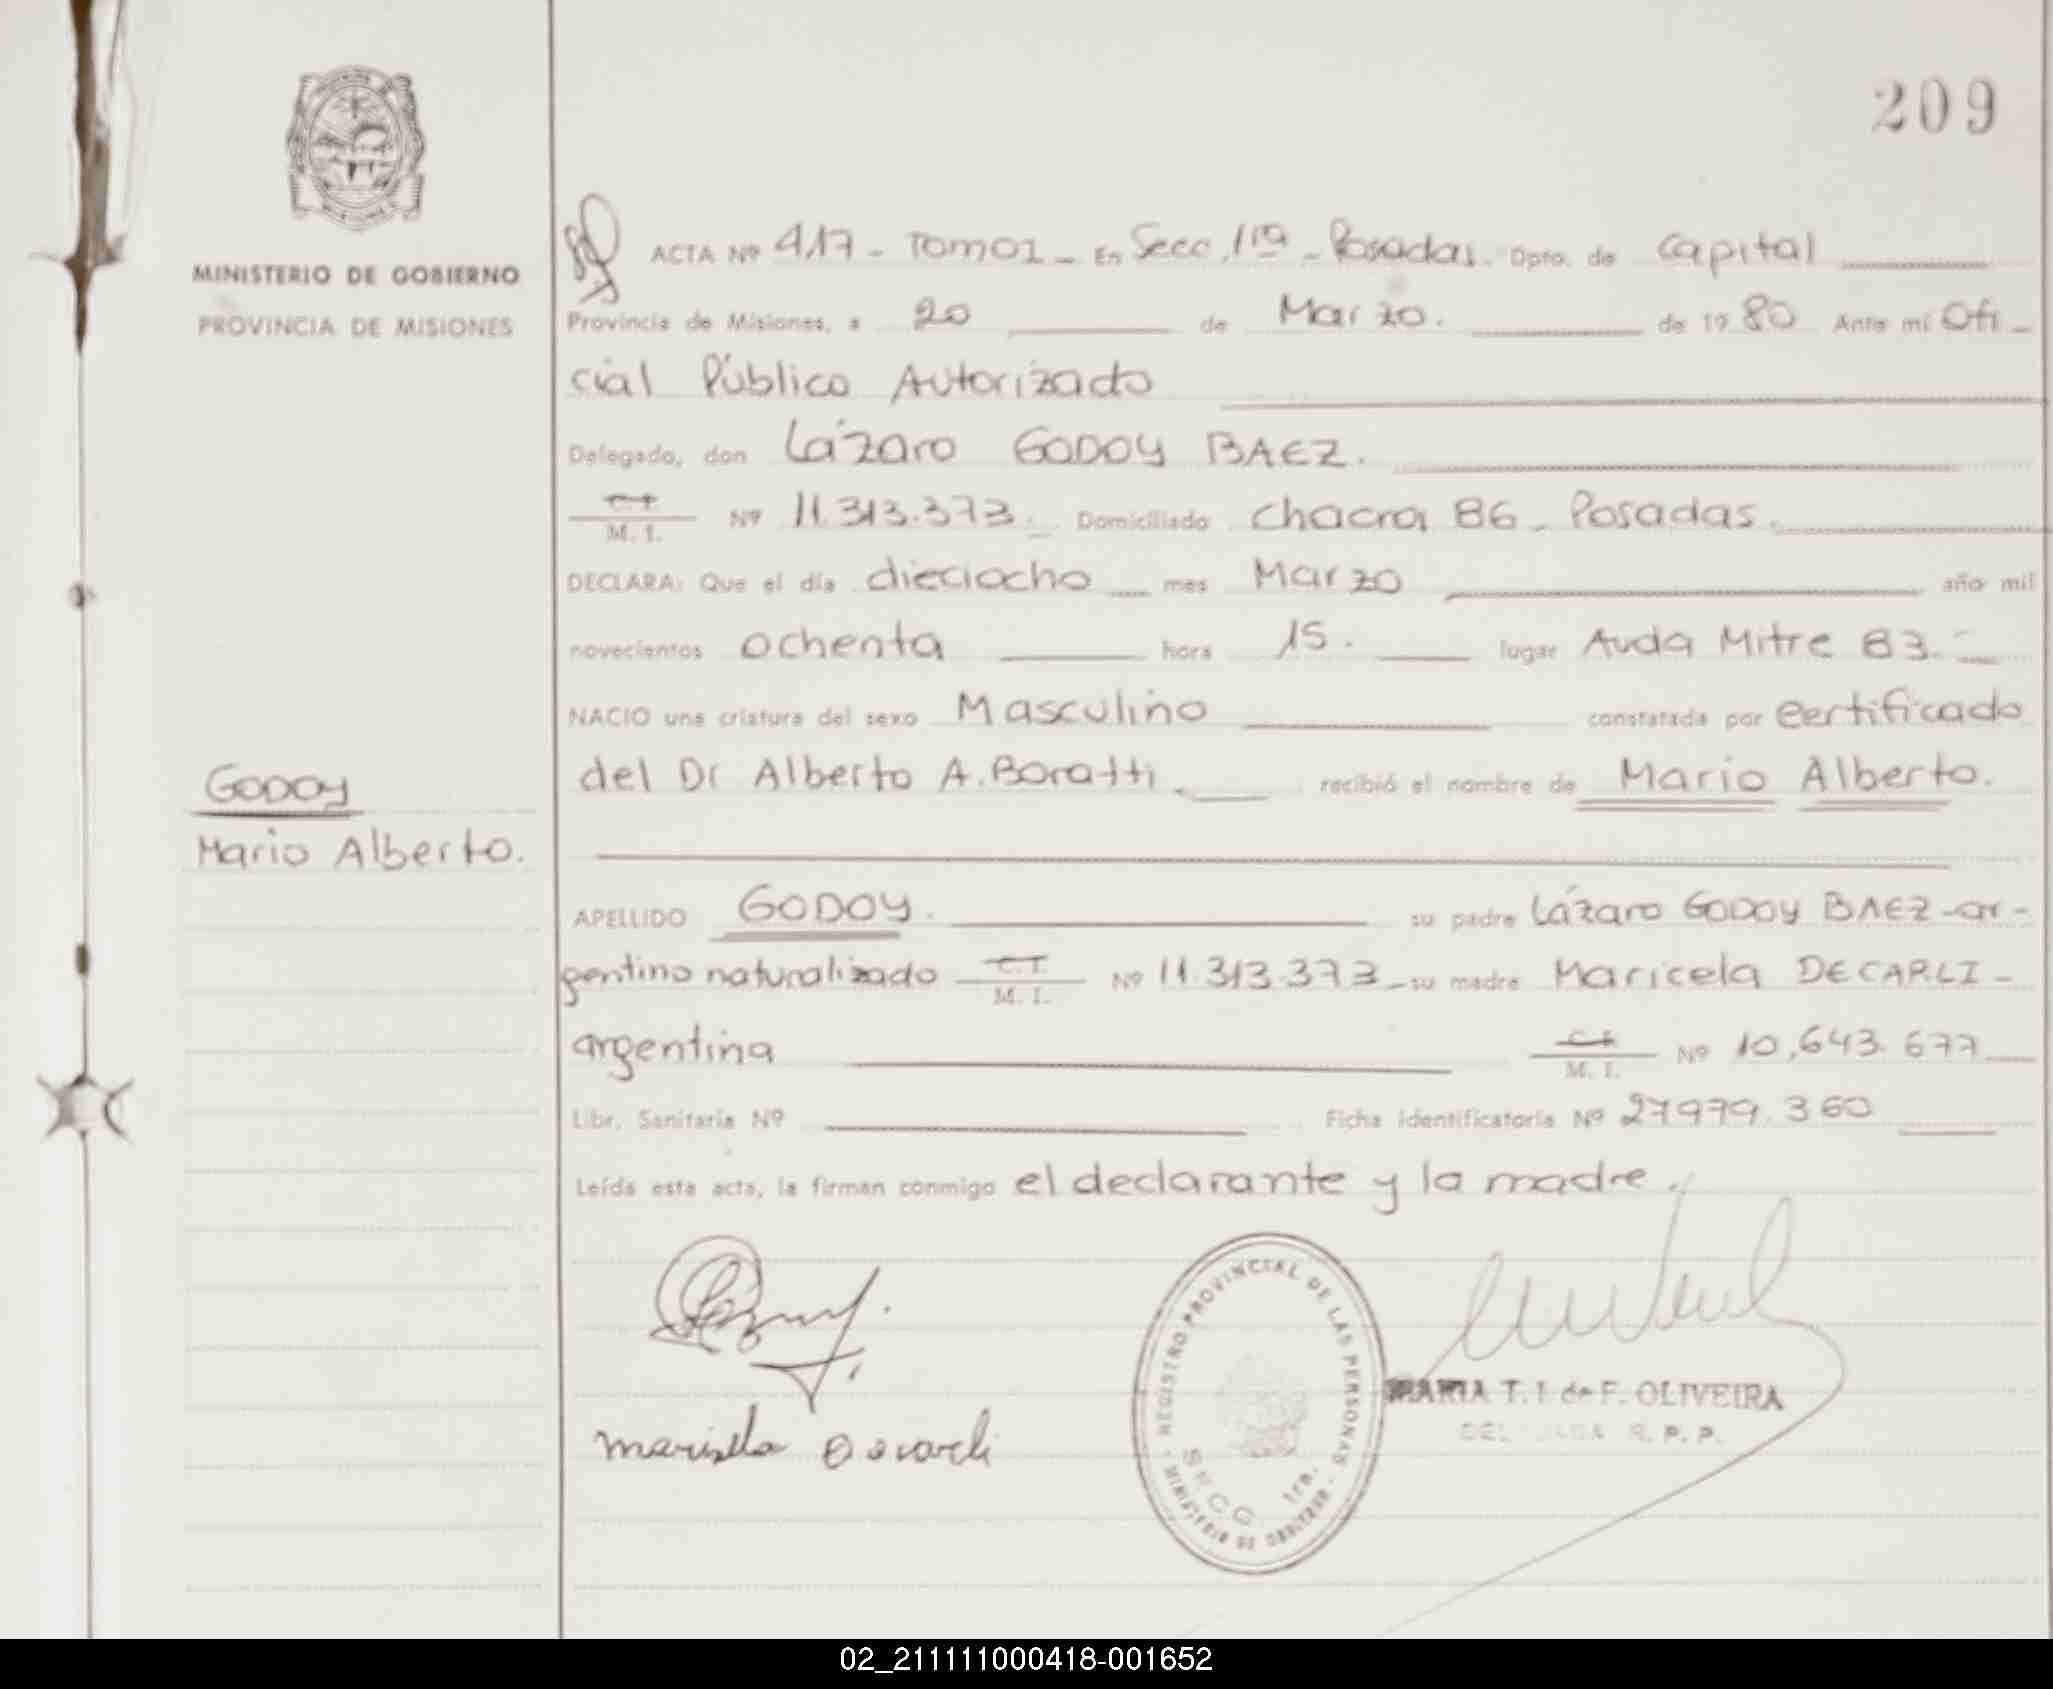 209
MINISTERIO DE GOBIERNO
PROVINCIA DE MISIONES
ACTA Nº 417 - TOMO 1 - En Secc. 1ra - Posadas. Dpto. de Capital
Provincia de Misiones, a 20 de Marzo. de 1980 Ante mí Ofi-
cial Público Autorizado
Delegado, don Lázaro GODOY BAEZ.
C.I.
M. I. Nº 11.313.373. Domiciliado Chacra 86 - Posadas.
DECLARA: Que el día dieciocho mes Marzo año mil
novecientos ochenta hora 15. lugar Avda Mitre 83.
NACIO una criatura del sexo Masculino constatada por certificado
del Dr Alberto A. Boratti recibió el nombre de Mario Alberto.
GODOY
Mario Alberto.
APELLIDO GODOY. su padre Lázaro GODOY BAEZ - ar-
gentino naturalizado C.I.
M. I. Nº 11.313.373 - su madre Maricela DECARLI -
argentina C.I.
M. I. Nº 10,643.677
Libr. Sanitaria Nº Ficha identificatoria Nº 27979.360
Leída esta acta, la firman conmigo el declarante y la madre.
REGISTRO PROVINCIAL DE LAS PERSONAS
SECC 1ra.
MINISTERIO DE GOBIERNO
MARIA T. I. de F. OLIVEIRA
R. P. P.
02_211111000418-001652